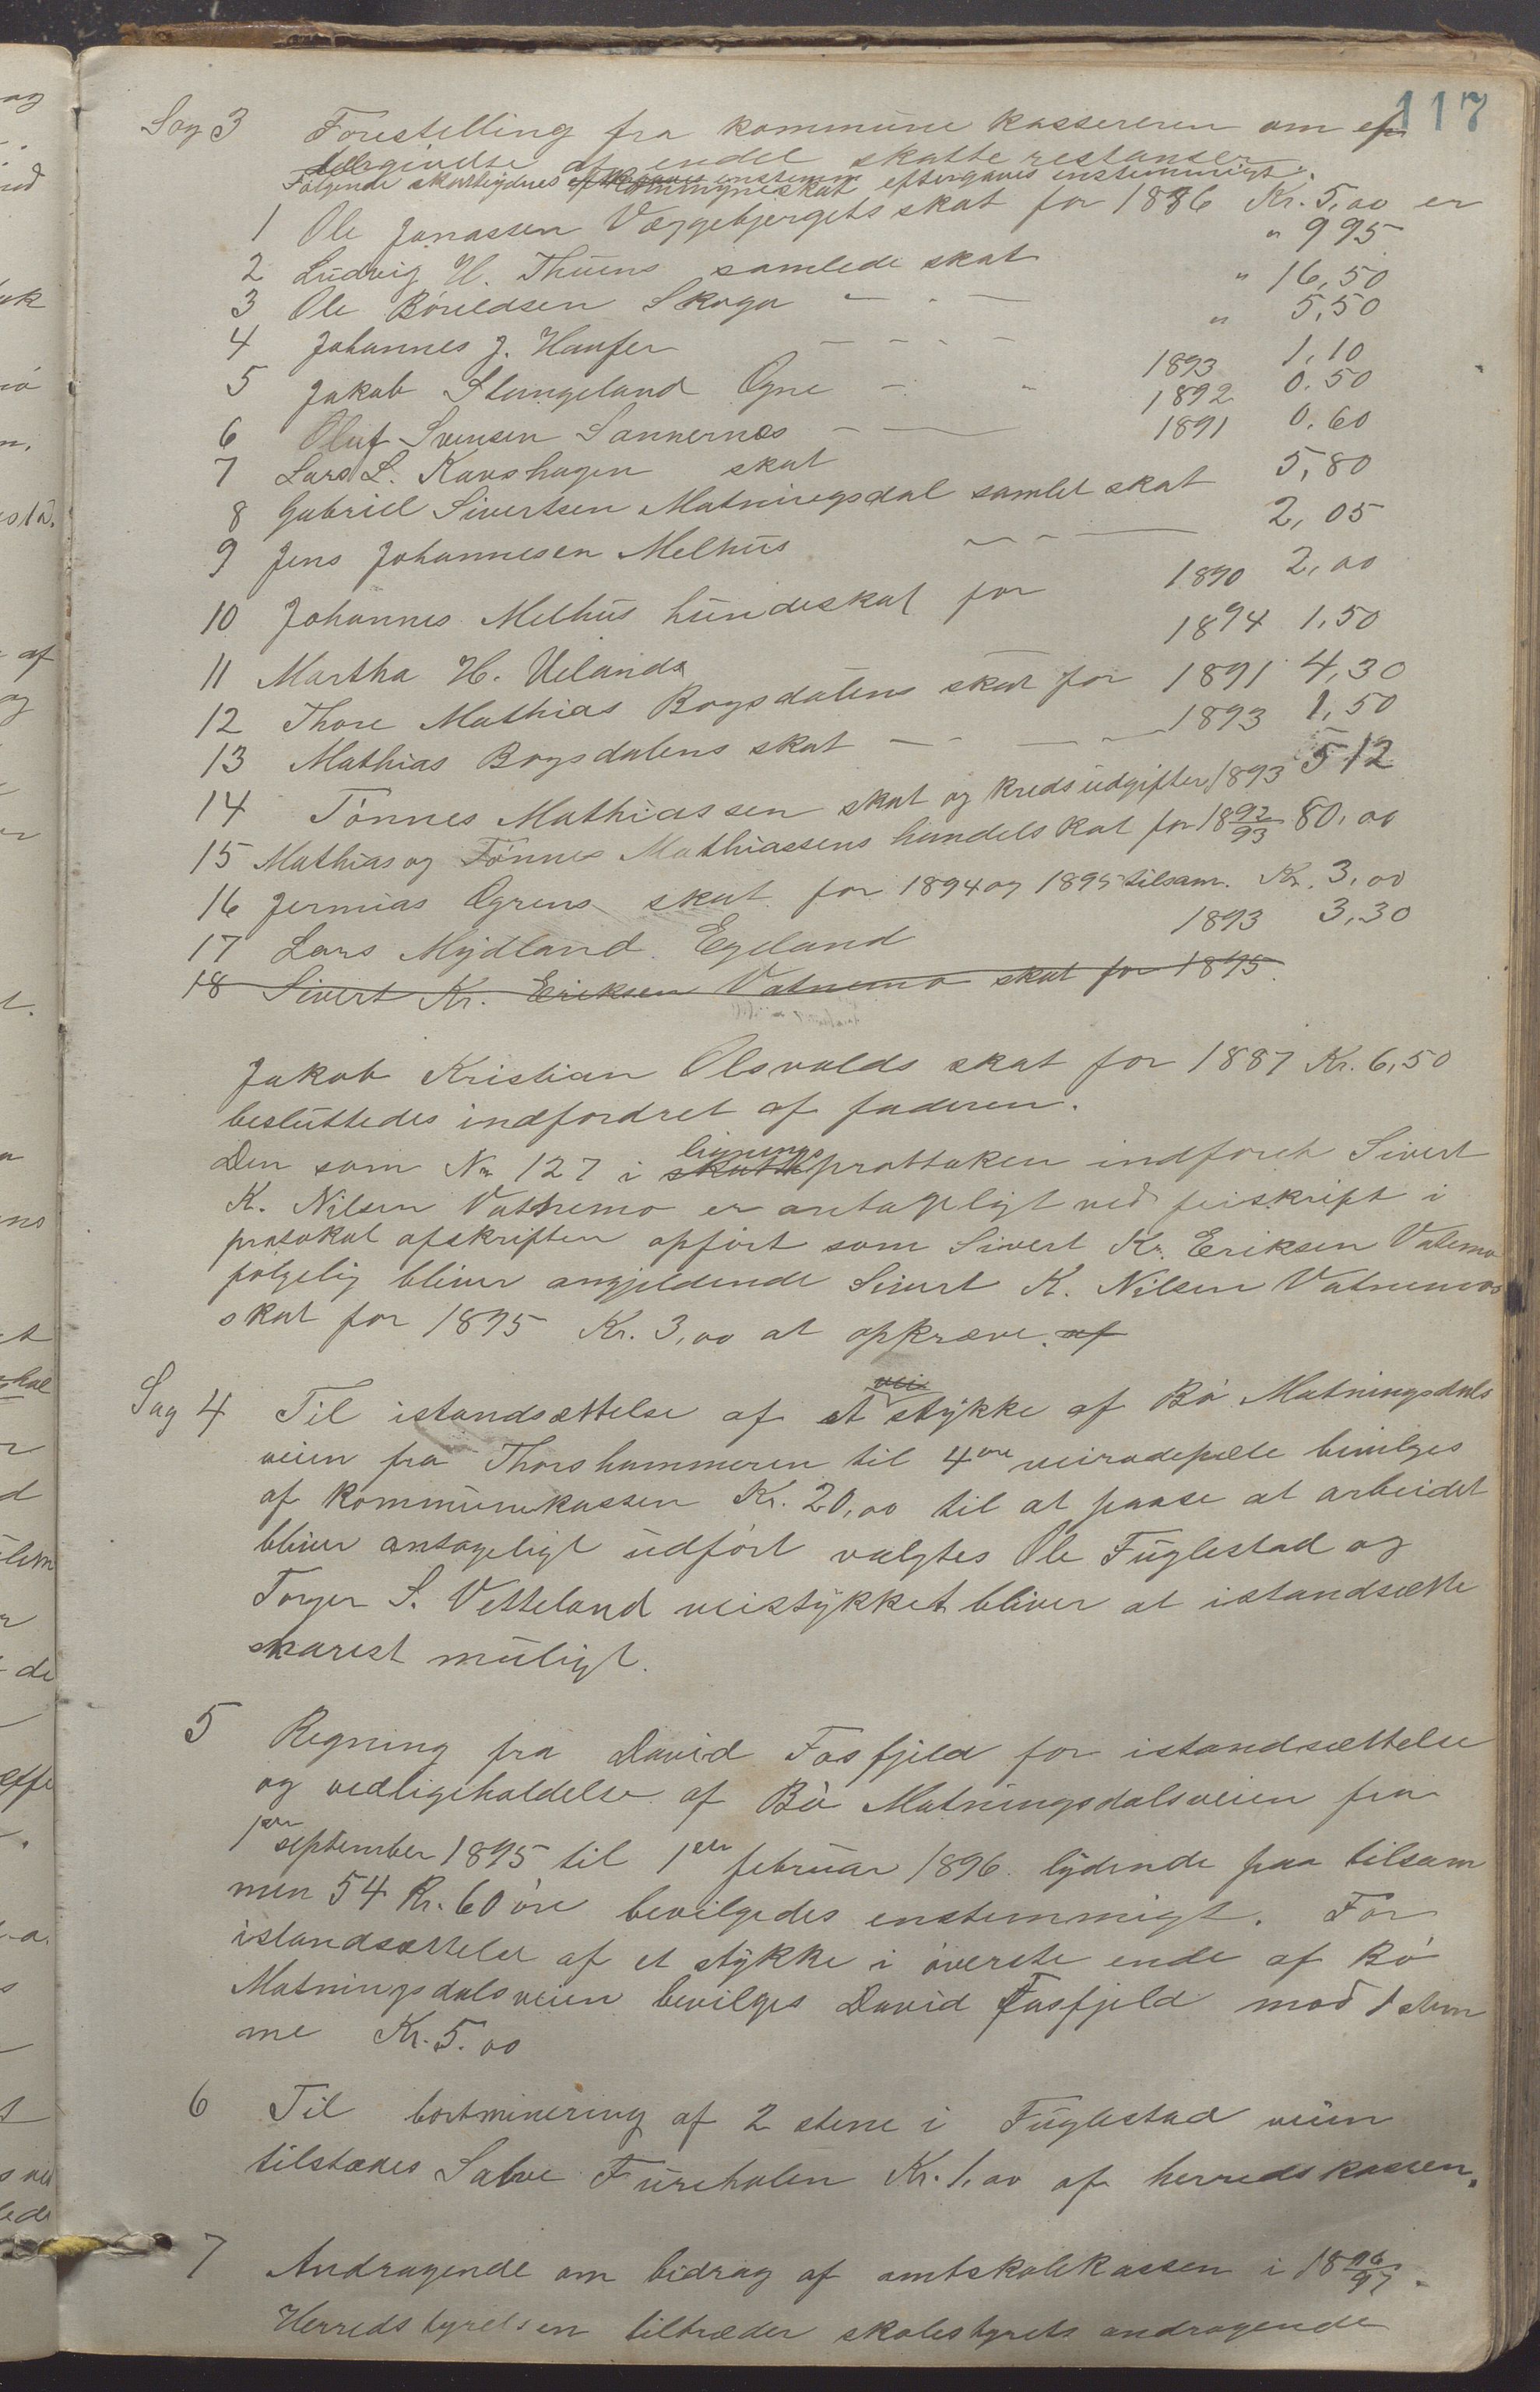 117
Sag 3 Forestelling fra kommune kassereren om ef
tergivelse af endel skatte restanser.
Følgende skatteyderes kommuneskat eftergaves enstemmigt.
1 Ole Jonassen Væggebjergets skat for 1886 Kr. 5,00 er
2 Ludvig H. Thuens samlede skat " 9 95
3 Ole Bóreldsen Skoga — " — " 16,50
4 Johannes J. Haufer — — — — " 5,50
5 Jakob Slungeland Ogne — " 1893 1,10
6 Oluf Svensen Sannernæs — — 1892 0.50
7 Lars L. Kavshagen skat 1891 0.60
8 Gabriel Sivertsen Matningsdal samlet skat 5,80
9 Jens Johannesen Melhus — — — 2,05
10 Johannes Melhus hundeskat for 1890 2,00
11 Martha H. Uelands 1894 1,50
12 Thore Mathias Bogsdalens skat for 1891 4,30
13 Mathias Bogsdalens skat — — — 1893 1,50
14 Tónnes Mathiassen skat og kredsudgifter 1893 5 12
15 Mathias og Tónnes Mathiassens handelskat for 18 92/93 80,00
16 Jermias Ogrens skat for 1894 og 1895 tilsam. Kr. 3,00
17 Lars Mydland Egeland 1893 3,30
18 Sivert Kr. Eriksen Vatnemo skat for 1895
Jakob Kristian Olsvalds skat for 1887 Kr. 6,50
besluttedes indfordret af faderen.
Den som No 127 i lignings protoken indfórt Sivert
K. Nilsen Vatnemo er antageligt ved feiskrift i
protokol afskriften opfórt som Sivert Kr. Eriksen Vatemo
fólgelig bliver angjeldende Sivert K. Nilsen Vatnemos
skat for 1895 Kr. 3,00 at opkræve. af
Sag 4 Til istandsættelse af et vei stykke af Bó Matningsdals
veien fra Thorshammeren til 4de veirodepæle bevilges
af kommunekassen Kr. 20,00 til at paase at arbeidet
bliver antageligt udfórt valgtes Ole Fuglestad og
Torger S. Vetteland veistykket bliver at istandsætte
snarest muligt.
5 Regning fra David Fosfjeld for istandsættelse
og vedligeholdelse af Bó Matningsdalsveien fra
1ste september 1895 til 1ste februar 1896 lydende paa tilsam
men 54 Kr. 60 óre bevilgedes enstemmigt. For
istandsættelse af et stykke i óverste ende af Bó
Matningsdalsveien bevilges David Fasfjeld mod 1 stem
me Kr. 5.00
6 Til bortminering af 2 stene i Fuglestad veien
tilstæes Salve Furehalen Kr. 1,00 af herredskassen.
7 Andragende om bidrag af amtskolekassen i 18 96/97.
Herredstyrelsen tiltræder skolestyrets andragende